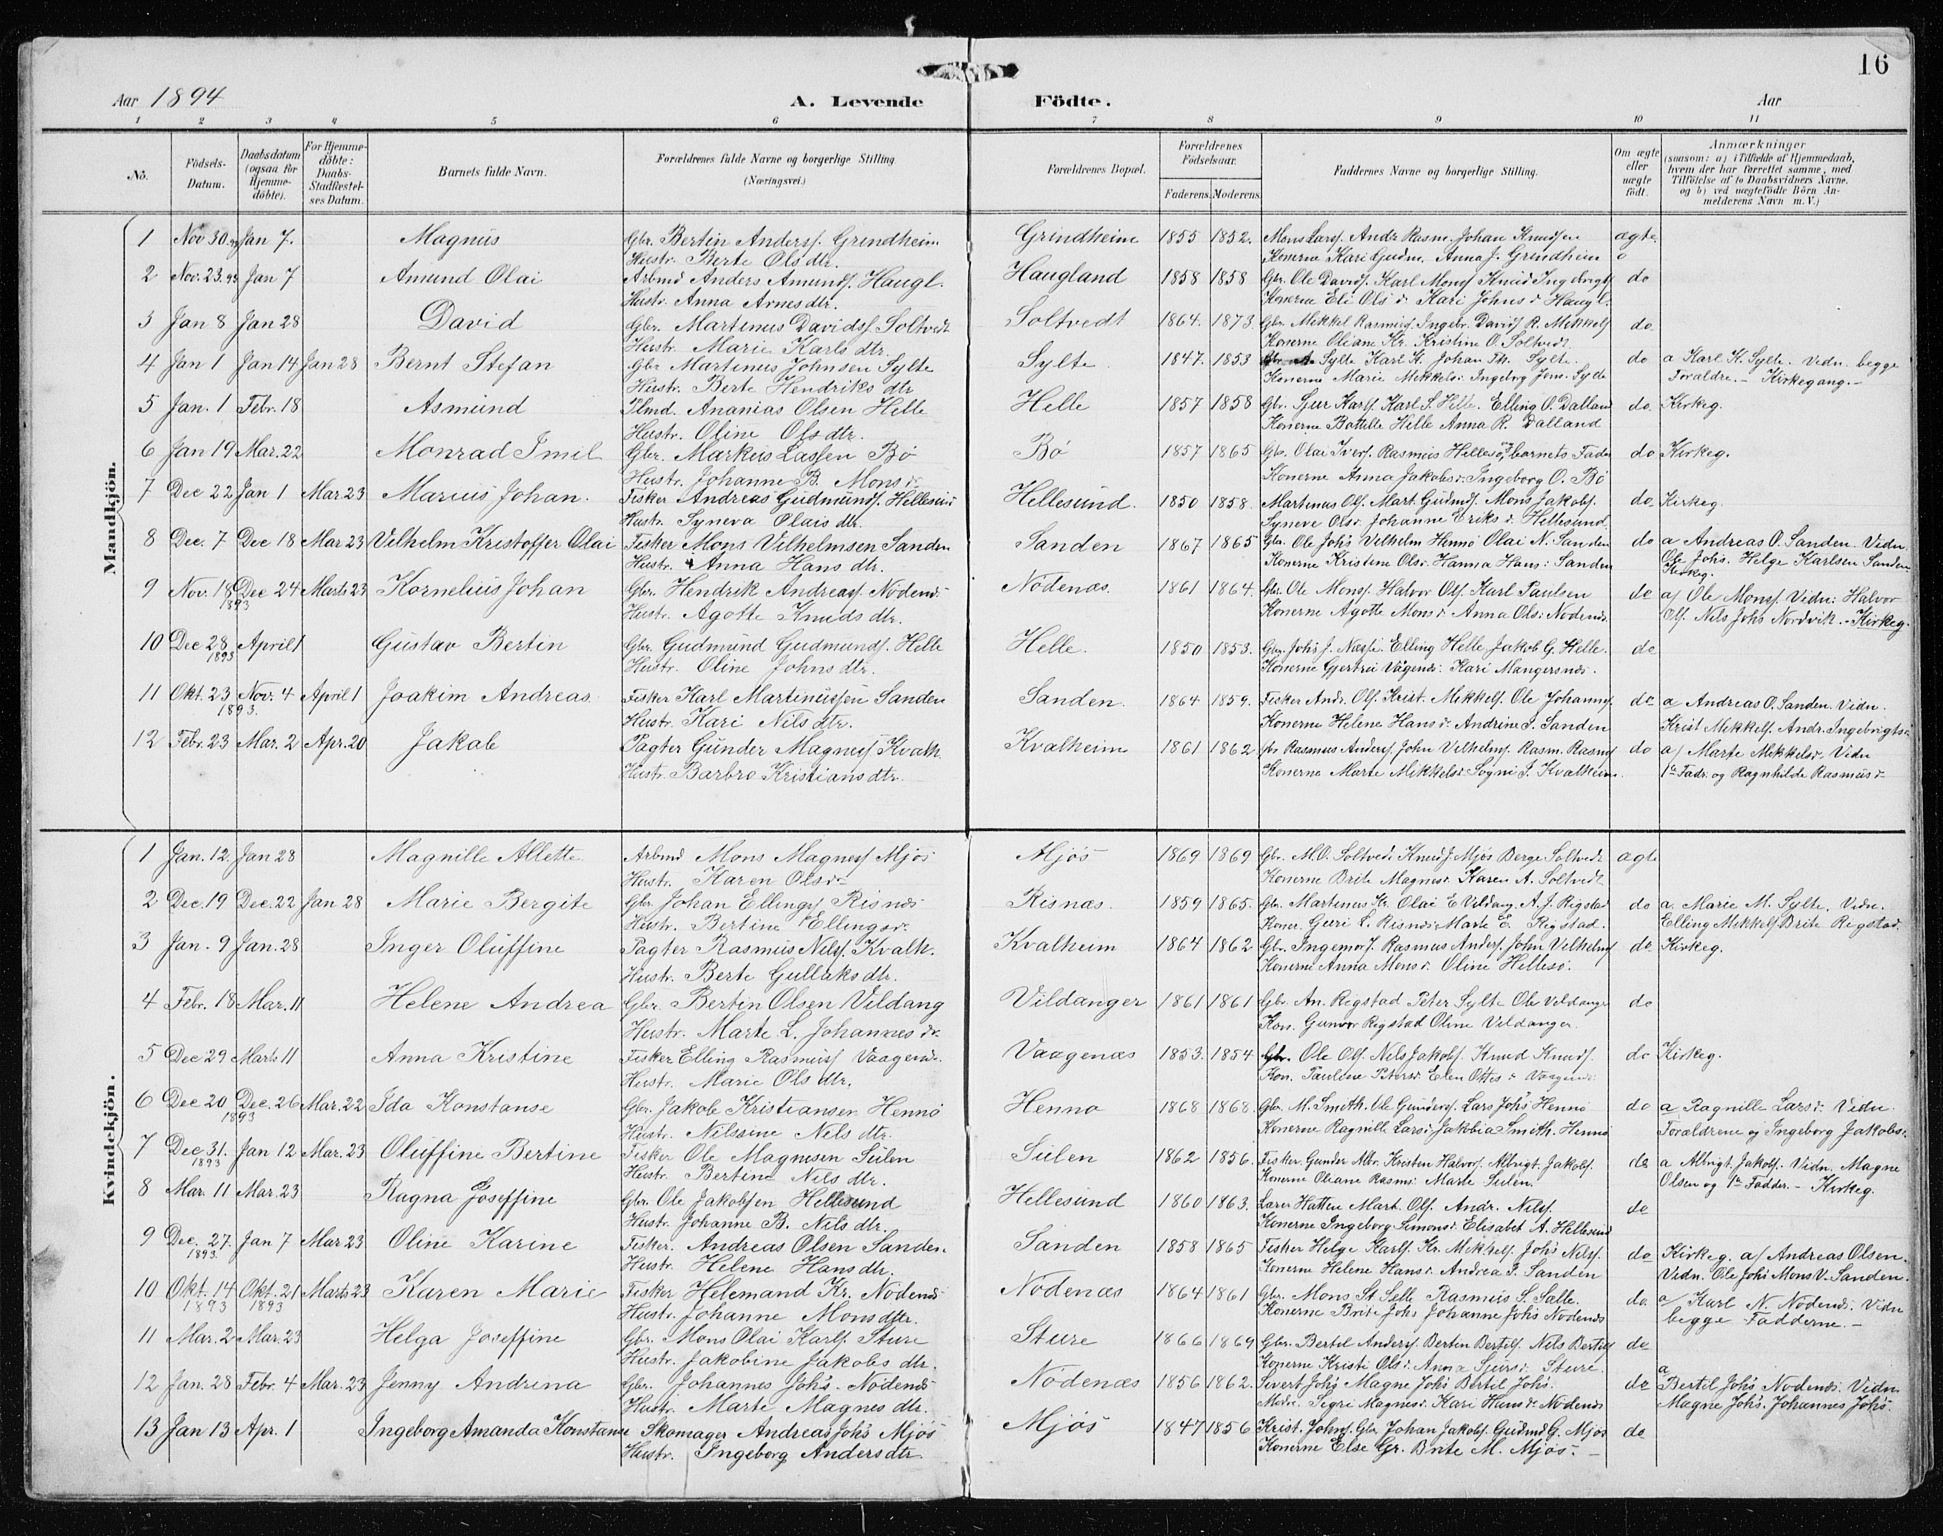 16
Aar 1894 A. Levende Födte. Aar
1 2 3 4 5 6 7 8 9 10 11
No. Födsels-Datum. Daabsdatum (ogsaa for Hjemmedöbte). For Hjemmedöbte: Daabs-Stadfæstelses Datum. Barnets fulde Navn. Forældrenes fulde Navne og borgerlige Stilling (Næringsvei.) Forældrenes Bopæl. Forældrenes Födselsaar. Faderens. Moderens. Faddernes Navne og borgerlige Stilling. Om ægte eller uægte födt. Anmærkninger (saasom: a) i Tilfælde af Hjemmedaab, hvem der har forrettet samme, med Tilföielse af to Daabsvidners Navne, og b) ved uægtefödte Börn Anmelderens Navn m. V.)
Mandkjön.
1 Nov 30.93 Jan 7. Magnus Gbr. Bertin Anders. Grindheim Grindheim 1855 1852. Mons Lars. Andr Rasm. Johan Knudsen ægte
Hustr. Berte Ols dtr. Konerne Kari Gudm. Anna J. Grindheim
2 Nov. 23.93 Jan 7 Amund Olai Arbmd Anders Amunds. Haugl. Haugland 1858 1858 Gbr. Ole Davids. Karl Mons. Knud Ingebrigts. do
Hustr. Anna Arnes dtr. Konerne Eli Ols d. Kari Johns d. Haugl.
3 Jan 8 Jan 28 David Gbr. Martinus Davids. Soltvedt Soltvedt 1864. 1873. Gbr. Mekkel Rasmus. Ingebr. Davids. R. Mekkels. do
Hustr. Marie Karls dtr. Konerne Oliane Kr. Kristine O. Soltvedt
4 Jan 1 Jan 14 Jan 28 Bernt Stefan Gbr Martinus Johnsen Sylte Sylte. 1847. 1853 Sylte Karl K. Johan Th. Sylte. do a Karl K. Sylte. Vidn. begge
Hustr. Berte Hendriks dtr Konerne Marie Mekkelsd. Ingeborg Jens. Sylte Foraldre. - Kirkegang. -
5 Jan. 1 Febr. 18 Asmund Plmd. Ananias Olsen Helle Helle 1857 1858 Gbr. Sjur Karls. Karl S. Helle. Elling O. Dalland do Kirkeg.
Hustr. Oline Ols dtr. Konerne Bottelle Helle Anna R. Dalland
6 Jan 19 Mar. 22 Monrad Imil Gbr. Markus Lassen Bø Bø 1857 1865 Gbr. Olai Ivers. Rasmus Hellesø, barnets Fader do Kirkeg.
Hustr. Johanne B. Mons d. Konerne Anna Jakobs d. Ingeborg O. Bø
7 Dec 22 Jan 1 Mar. 23 Marius Johan. Fisker Andreas Gudmunds. Hellesund Hellesund. 1850 1858. Martinus Ols. Mart. Gudmds. Mons Jakobs. do Kirkeg.
Hustr. Syneva Olais dtr. Syneve Olsd. Johanne Eriks d. Hellesund.
8 Dec. 7 Dec 18 Mar 23 Vilhelm Kristoffer Olai Fisker Mons Vilhelmsen Sanden Sanden 1867 1865 Gbr. Ole Johs. Vilhelm Hennø Olai N. Sanden do a Andreas O. Sanden. Vidn
Hustr. Anna Hans dtr. Konerne Kristine Olsd. Hanna Hansd. Sanden Ole Johs. Helge Karlsen Sanden
Kirkeg.
9 Nov. 18 Dec 24 Marts 23 Kornelius Johan Gbr. Hendrik Andreas. Nödenes Nödenæs. 1861 1864. Gbr. Ole Mons. Halvor Ols. Karl Paulsen do a/ Ole Mons. Vidn: Halvor
1893 Hustr. Agotte Knuds dtr. Konerne Agotte Mons d. Anna Olsd. Nödenes. Ols. Nils Johs Nordvik. - Kirkeg.
10 Dec 28 April 1 Gustav Bertin Gbr. Gudmund Gudmunds. Helle Helle. 1850 1853. Gbr. Johs J. Næsse. Elling Helle Jakob G. Helle. do
1893 Hustr. Oline Johns dtr. Konerne Gjertrui Vågenæs. Kari Mangersnes.
11 Okt. 23 Nov. 4 April 1 Joakim Andreas. Fisker Karl Martinussen Sanden Sanden. 1864 1859. Fisker Andr. Ols. Krist. Mekkels. Ole Johanns. do a Andreas O. Sanden. Vidn.
1893. Hustr. Kari Nils dtr. Konerne Helene Hans d. Andrine J. Sanden Krist Mekkels. Andr. Ingebrigts.
12 Febr. 23 Mar. 2 Apr. 20 Jakob Pagter Gunder Magnes. Kvalh. Kvalheim 1861 1862 Gbr Rasmus Anders. John Vilhelms. Rasm. Rasms. do a/ Marte Mekkelsd. Vidn
Hustr. Barbro Kristians dtr. Konerne Marte Mekkelsd. Sogni J. Kvalheim. 1ª Fadr. og Ragnhilde Rasmus d.
Kvindekjön.
1 Jan. 12. Jan 28 Magnille Allette Arbmd Mons Magnes. Mjös Mjös 1869 1869 Gbr. M. O. Soltvedt Knud J. Mjös Berge Soltvedt ægte
Hustr. Karen Olsd. Konerne Brite Magnesd. Karen A. Soltvedt
2 Dec. 19 Dec. 22 Jan 28 Marie Bergite Gbr Johan Ellings. Risnes Risnæs. 1859 1865. Gbr. Martinus Kr. Olai E Vildang. A. J. Rigstad do a. Marie M. Sylte. Vidn.
Hustr. Bertine Ellingsd. Koner. Guri L. Risnes. Marte E. Rigstad. Elling Mekkels. Brite Rigstad.
3 Jan. 9 Jan. 28 Inger Oluffine Pagter Rasmus Nils. Kvalh. Kvalheim 1864 1862 Gbr. Ingemor J. Rasmus Anders. John Vilhelms. do Kirkeg.
Hustr. Berte Gullaks dtr. Konerne Anna Mons d. Oline Hellesø.
4 Febr. 18 Mar. 11 Helene Andrea Gbr. Bertin Olsen Vildang Vildanger 1861 1861 Gbr. An. Rigstad Peter Sylte Ole Vildanger do
Hustr. Marte L. Johannes d. Kon. Gunvor Rigstad Oline Vildanger.
5 Dec 29 Marts 11 Anna Kristine Fisker Elling Rasmus. Vaagenæs. Vaagenæs 1853. 1854 Gbr. Ole Ols. Nils Jakobs. Knud Knuds. do Kirkeg.
Hustr. Marie Ols dtr. Kon. Pauline Petersd. Elen Ottes d. Vaagenes.
6 Dec 20 Dec. 26 Mar. 22 Ida Konstanse Gbr. Jakob Kristiansen Hennø Henno 1868 1868. Gbr. M. Smith. Ole Gunders. Lars Johs Hennø do a Ragnille Larsd. Vidn.
1893 Hustr. Nilssine Nils dtr. Konerne Ragnille Larsd. Jakobia Smith. Hennø Foraldrene og Ingeborg Jakobsd.
7 Dec 31. Jan 12 Mar. 23 Oluffine Bertine Fisker Ole Magnesen Sulen Sulen 1862 1856. Fisker. Gunder Albr. Kristen Halvors. Albrigt. Jakobs. do a Albrigt. Jakobs. Vidn. Magne
1893 Hustr. Bertine Nils dtr. Konerne Oliane Rasmsd. Marte Sulen. Olsen og 1ste Fadder. - Kirkeg.
8 Mar. 11 Mar. 23 Ragna Joseffine Gbr. Ole Jakobsen Hellesund Hellesund 1860 1863. Lærer Hatten Mart. Ols. Andr. Nils. do
Hustr. Johanne B. Nils dtr. Konerne Ingeborg Simonsd. Elisabet A. Hellesund
9 Dec. 27. Jan 7 Mar 23 Oline Karine Fisker. Andreas Olsen Sanden. Sanden 1858 1865 Fisker Helge Karls. Kr. Mekkels. Johs Nils. do Kirkeg. a/ Andreas Olsen.
1893. Hustr. Helene Hans dtr. Konerne Helene Hans d. Andrea J. Sanden Vidn. Ole Johs Mons V. Sanden.
10 Okt. 14 Okt. 21 Marts 23 Karen Marie Fisker Helemand Kr. Nödenes Nödenæs 1864 1861 Gbr. Mons St Selle Rasmus S. Salle. do. a/ Karl N. Nödenes. Vidn
1893 1893 Hustr. Johanne Mons dtr. Konerne Brite Johs Johanne Johs Nödenes begge Fadderne. -
11 Mar. 2 Mar. 23 Helga Joseffine Gbr. Mons Olai Karls. Sture Sture 1866 1869 Gbr. Bertel Anders. Bertin Bertels. Nils Bertels. do
Hustr. Jakobine Jakobs dtr. Konerne Kristi Olsd. Anna Sjursd. Sture
12 Jan. 28 Febr. 4 Mar. 23 Jenny Andrina Gbr. Johannes Johs. Nödenes Nödenæs 1856 1862. Sivert Johs Magne Johs Bertil Johs. do a Bertil Johs Nödenes. Vidn.
Hustr. Marte Magnes dtr. Segri Magnesd. Kari Hansd. Nödenes Magne Johs. Johannes Johs.
13 Jan 13 Apr. 1 Ingeborg Amanda Konstanse Skomager Andreas Johs Mjös Mjös 1847 1856 Krist. Johns. Gbr. Johan Jakobs. Gudmd G. Mjös do
Hustr. Ingeborg Anders dtr Konerne Else Gr. Brite M. Mjös. -